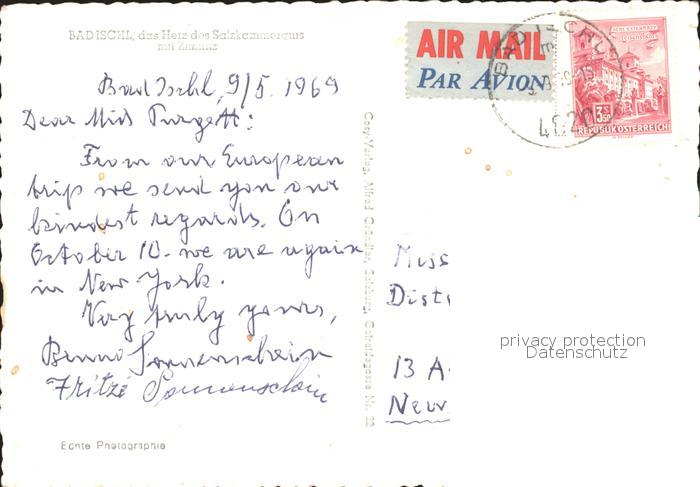 BAD ISCHL, das Herz des Salzkammergutes
mit Zimnitz
Bad Ischl, 9/5. 1969
Dear Miss Turgett:
From our European
trip we send you our
kindest regards. On
October 10. we are again
in New York.
Very truly yours,
Benno Sonnenschein
Fritzi Sonnenschein
Echte Photographie
Cosy-Verlag, Alfred Gründler, Salzburg, Nr. 22
AIR MAIL
PAR AVION
BAD ISCHL
4820
3S50
REPUBLIK ÖSTERREICH
Miss
Dist
13 A
New
privacy protection
Datenschutz